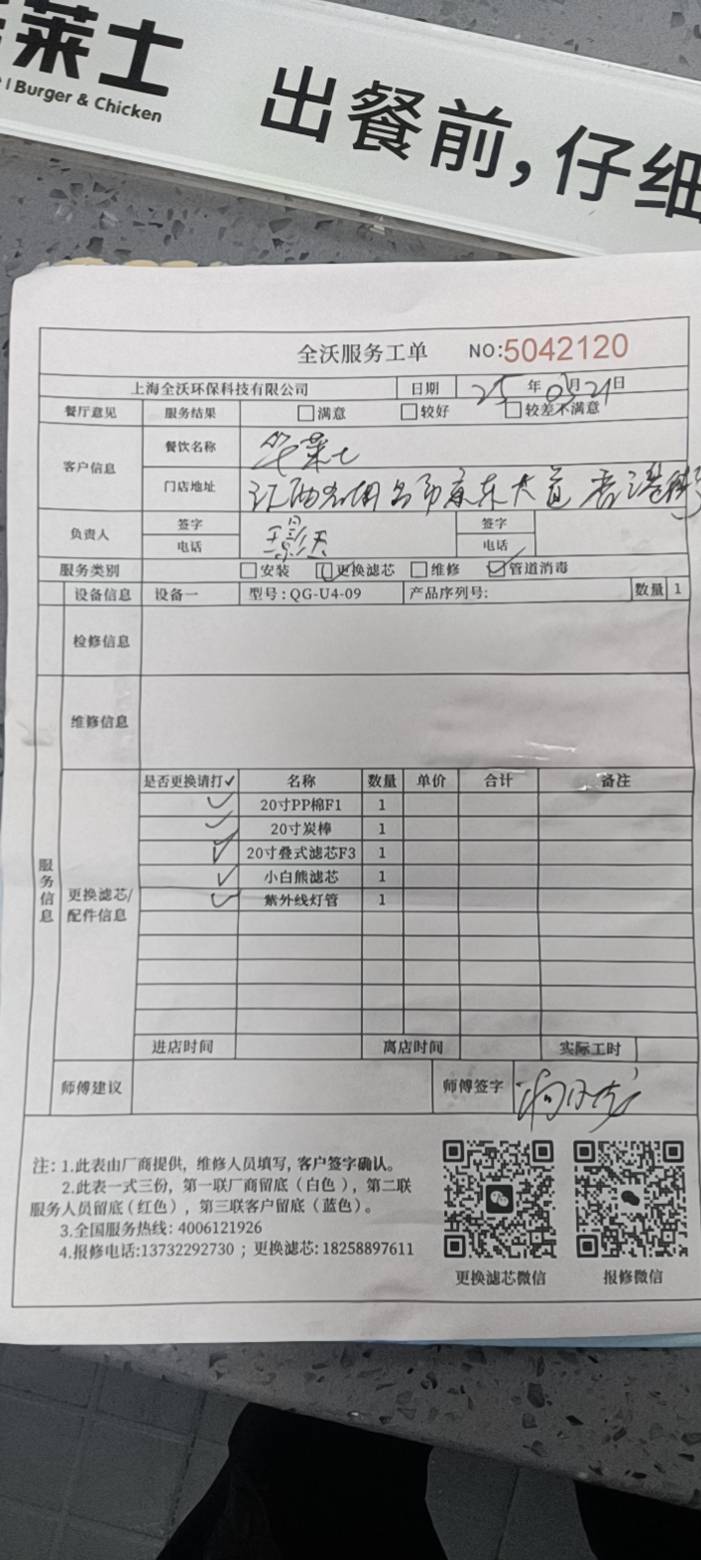 莱士
Burger & Chicken
出餐前,仔细
全沃服务工单 NO:5042120
上海全沃环保科技有限公司 日期 25年03月21日
餐厅意见 服务结果 □满意 □较好 □较差不满意
客户信息 餐饮名称 华莱士
门店地址 江西 京东大道 香港街
负责人 签字 签字
电话 电话
服务类别 □安装 ☑更换滤芯 □维修 ☑管道消毒
设备信息 设备一 型号:QG-U4-09 产品序列号: 数量 1
检修信息
维修信息
服务信息
更换滤芯/配件信息
是否更换请打✓ 名称 数量 单价 合计 备注
✓ 20寸PP棉F1 1
✓ 20寸炭棒 1
✓ 20寸叠式滤芯F3 1
✓ 小白熊滤芯 1
✓ 紫外线灯管 1
进店时间 离店时间 实际工时
师傅建议 师傅签字
注:1.此表由厂商提供,维修人员填写,客户签字确认。
2.此表一式三份,第一联厂商留底(白色),第二联
服务人员留底(红色),第三联客户留底(蓝色)。
3.全国服务热线:4006121926
4.报修电话:13732292730;更换滤芯:18258897611
更换滤芯微信 报修微信